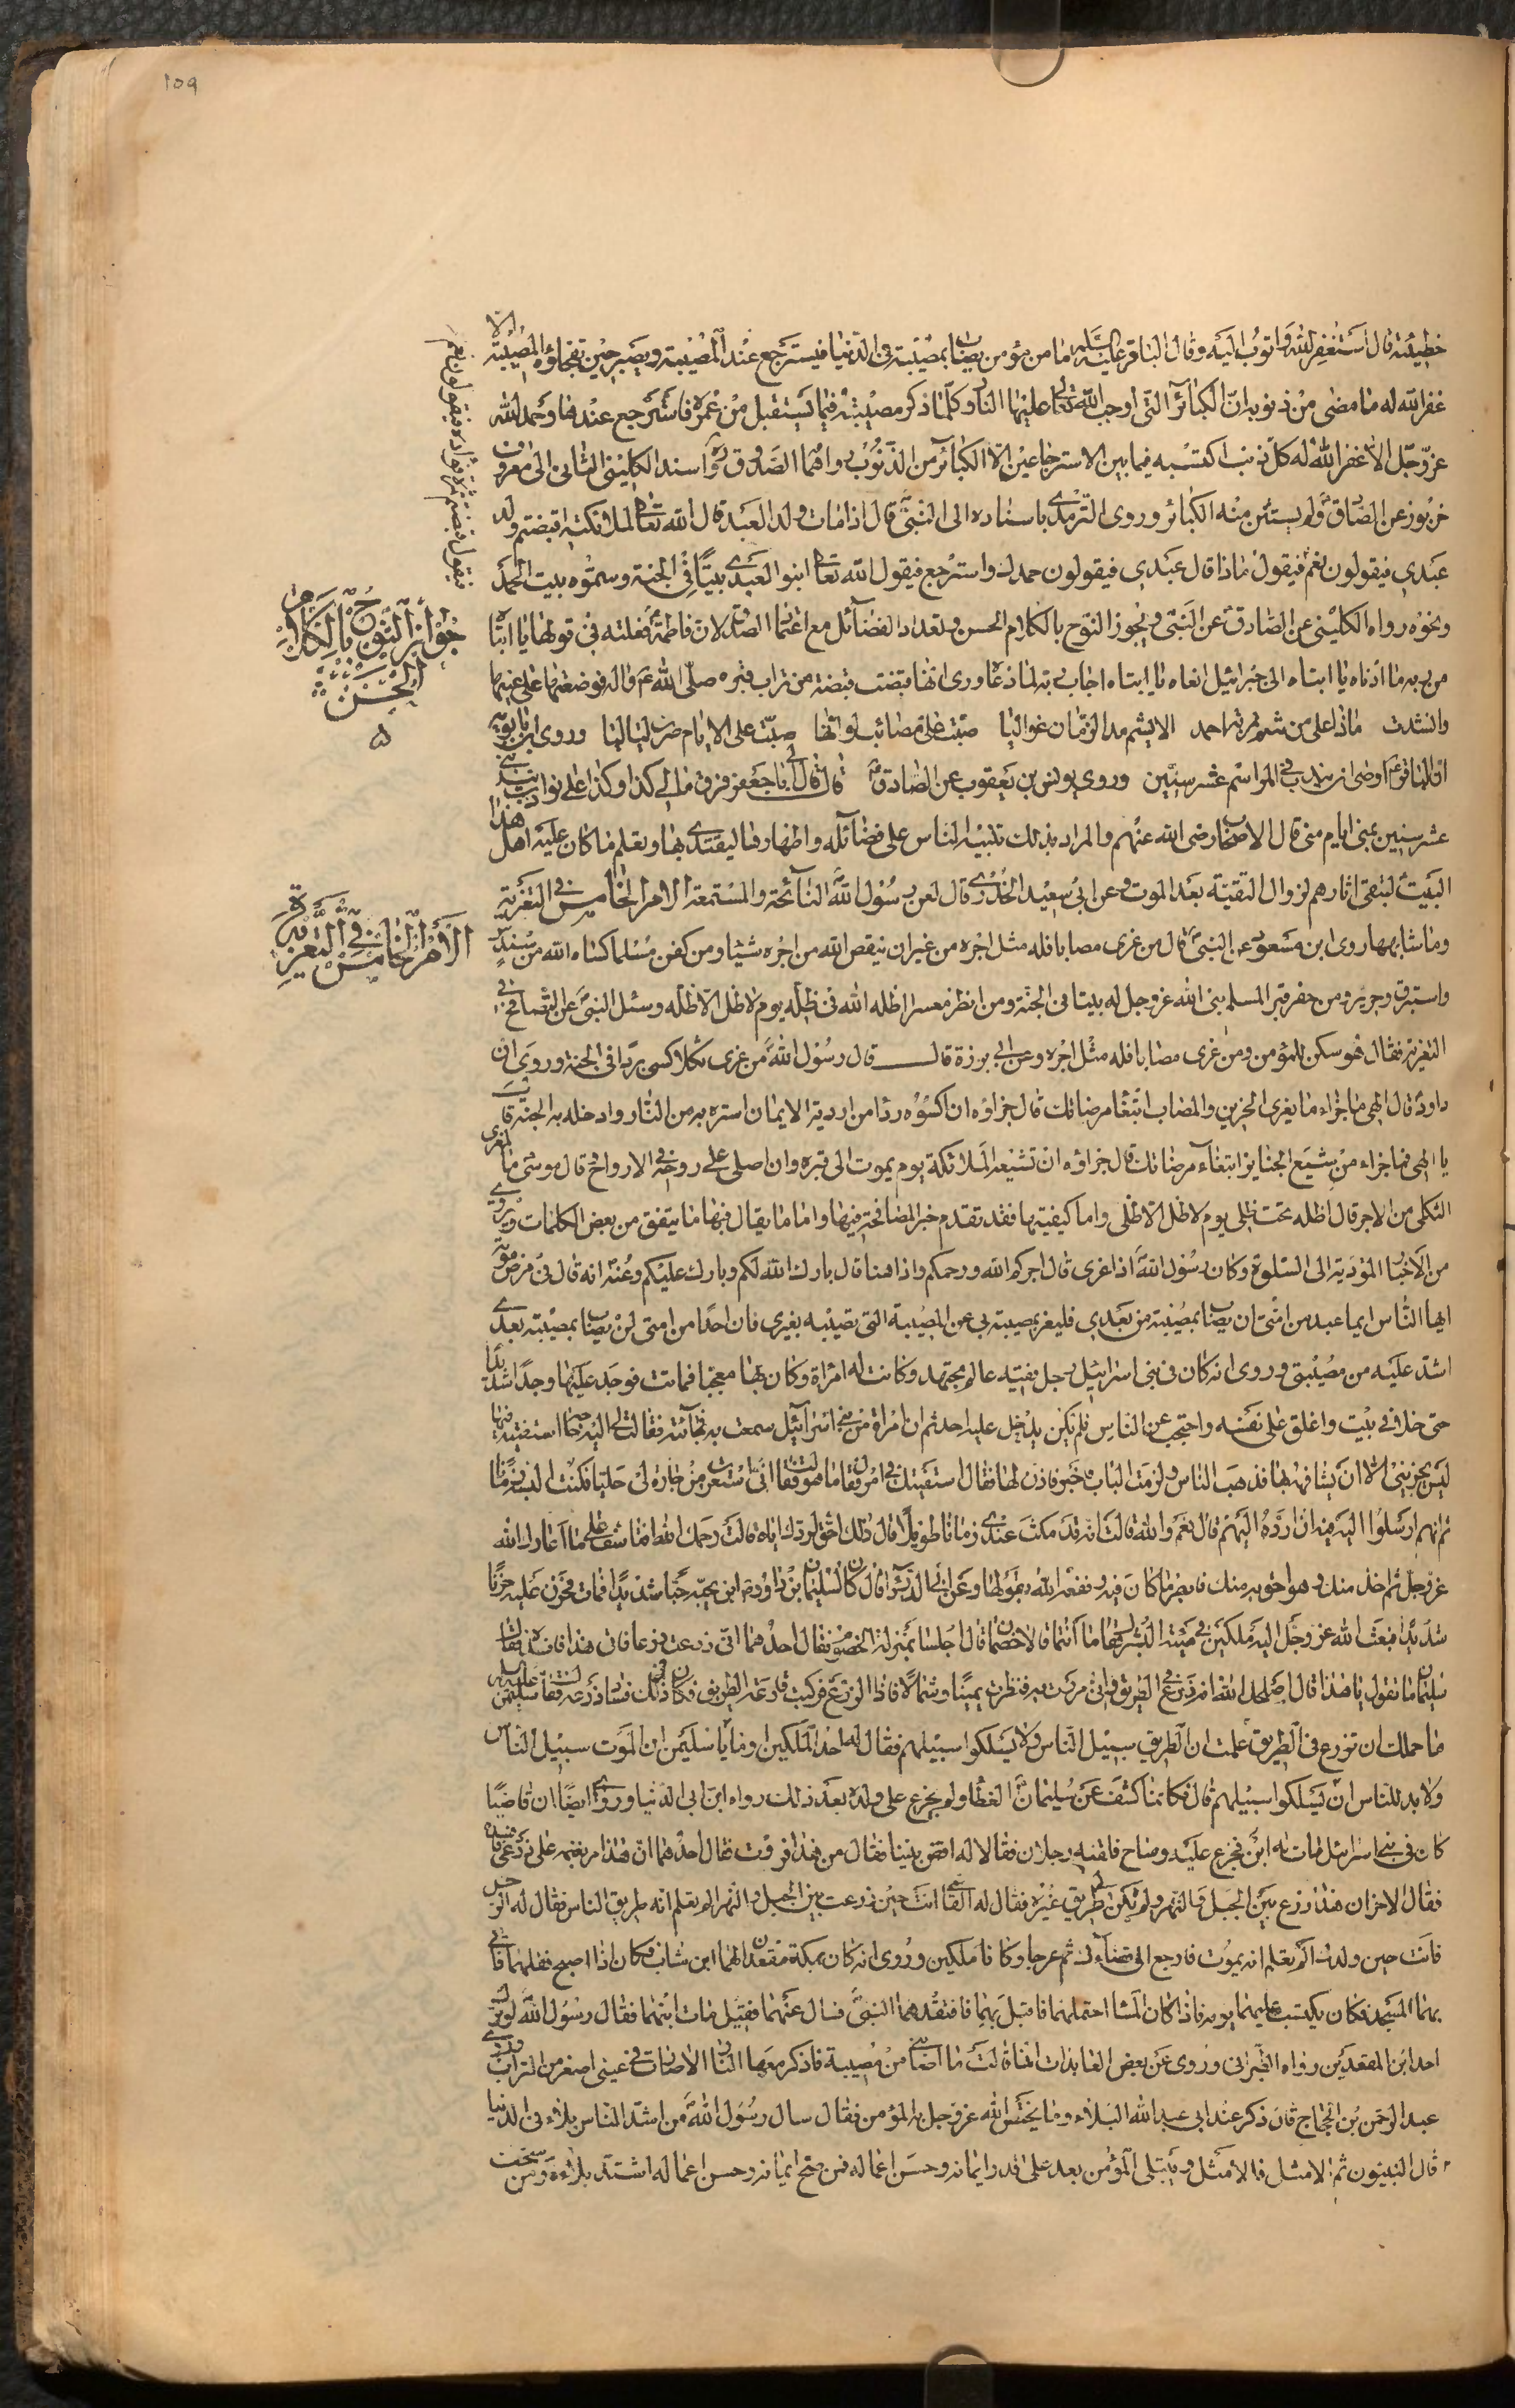 ١٥٩
خطيئته قال استغفر الله واتوب اليه وقال الباقر عليه السلام ما من مؤمن يصاب بمصيبة في الدنيا فيسترجع عند المصيبة ويصبر حين تفجاؤه المصيبة الا
غفر الله له ما مضى من ذنوبه الا الكبائر التي اوجب الله تعالى عليها النار وكلما ذكر مصيبته فيما يستقبل من عمره فاسترجع عندها وحمد الله
عز وجل الا غفر الله له كل ذنب اكتسبه فيما بين الاسترجاعين الا الكبائر من الذنوب رواهما الصدوق ره واسند الكليني الثاني الى معروف
خربوز عن الصادق ولم يستثن منه الكبائر وروى الترمذي باسناده الى النبي قال اذا مات ولد العبد قال الله تعالى لملائكته اقبضتم ولد
عبدي فيقولون نعم فيقول ماذا قال عبدي فيقولون حمدك واسترجع فيقول الله تعالى ابنوا لعبدي بيتا في الجنة وسموه بيت الحمد
ونحوه رواه الكليني عن الصادق عن النبي ويجوز النوح بالكلام الحسن وتعداد الفضائل مع اعتماد الصدق لان فاطمة فعلته في قولها يا ابتاه
من ربه ما ادناه يا ابتاه الى جبرائيل انعاه يا ابتاه اجاب ربه لما دعاه وروى انها قبضت قبضة من تراب قبره صلى الله عليه واله فوضعتها على عينيها
وانشدت ماذا على من شم تربة احمد الا يشم مدى الزمان غواليا صبت علي مصائب لو انها صبت على الايام صرن لياليا وروى ابن بابويه
ان الباقر اوصى ان يندب في المواسم عشر سنين وروى يونس بن يعقوب عن الصادق قال قال لي ابي يا جعفر قف من مالي كذا وكذا على نوادب تندبني
عشر سنين بمنى ايام منى قال الاصحاب رضي الله عنهم والمراد بذلك تنبيه الناس على فضائله واظهارها ليقتدى بها ويعلم ما كان عليه اهل هذا
البيت لتقتفى اثارهم لزوال التقية بعد الموت وعن ابي سعيد الخدري قال لعن رسول الله النائحة والمستمعة الامر الخامس في التعزية
وما شابهها روى ابن مسعود عن النبي قال من عزى مصابا فله مثل اجره من غير ان ينقص الله من اجره شيئا ومن كفن مسلما كساه الله من سندس
واستبرق وحرير ومن حفر قبرا لمسلم بنى الله عز وجل له بيتا في الجنة ومن انظر معسرا اظله الله في ظله يوم لا ظل الا ظله وسئل النبي عن التصافح في
التعزية فقال هو سكن للمؤمن ومن عزى مصابا فله مثل اجره وعن ابي برزة قال قال رسول الله من عزى ثكلا كسى بردا في الجنة وروى ان
داود قال الهي ما جزاء ما يعزى الحزين والمصاب ابتغاء مرضاتك قال جزاؤه ان اكسوه رداء من اردية الايمان استره به من النار وادخله به الجنة قال
يا الهي فما جزاء من يشيع الجنايز ابتغاء مرضاتك قال جزاؤه ان تشيعه الملائكة يوم يموت الى قبره وان اصلي على روحه في الارواح قال موسى ما لمعزى
الثكلى من الاجر قال اظله تحت ظلي يوم لا ظل الا ظلي واما كيفيتها فقد تقدم خبر المصافحة فيها واما ما يقال فيها ما يتفق من بعض الكلمات ويروى
من الاخبار المؤدية الى السلوة وكان رسول الله اذا عزى قال اجركم الله ورحمكم واذا هنا قال بارك الله لكم وبارك عليكم وعنه انه قال في مرض موته
ايها الناس ايما عبد من امتي ان يصاب بمصيبة من بعدي فليعز بمصيبته بي عن المصيبة التي تصيبه بغيري فان احدا من امتي لن يصاب بمصيبة بعدي
اشد عليه من مصيبتي وروى انه كان في بني اسرائيل رجل فقيه عالم مجتهد وكانت له امراة وكان بها معجبا فماتت فوجد عليها وجدا شديدا
حتى خلا في بيت واغلق على نفسه واحتجب عن الناس فلم يكن يدخل عليه احد ثم ان امراة من بني اسرائيل سمعت به فجائته فقالت لي اليه حاجة استفتيه فيها
ليس يجزيني الا ان يشافهني بها فذهب الناس ولزمت الباب فاخبر فاذن لها فقال استفتيك في امر فقال ما هو فقالت اني استعرت من جارة لي حليا فكنت البسه زمانا
ثم انهم ارسلوا اليه في افارده اليهم قال نعم والله قالت انه قد مكث عندي زمانا طويلا قال ذلك احق لردك اياه قالت رحمك الله افتاسف على ما اعارك الله
عز وجل ثم اخذ منك وهو احق به منك فابصر ما كان فيه ونفعه الله بقولها وعن ابي الدرداء قال كان لسليمان بن داود ابن يحبه حبا شديدا فمات فحزن عليه حزنا
شديدا فبعث الله عز وجل اليه ملكين في هيئة البشر فقال ما انتما قالا خصمان قال اجلسا بمنزلة الخصوم فقال احدهما اني زرعت زرعا فاتى هذا فافسده فقال
سليمان ما تقول يا هذا قال اصلحك الله انه زرع في الطريق واني مررت به فنظرت يمينا وشمالا فاذا الزرع فركبت قارعة الطريق فكان في ذلك فساد زرعه فقال سليمان عليه السلام
ما حملك ان تزرع في الطريق اما علمت ان الطريق سبيل الناس ولابد للناس ان يسلكوا سبيلهم فقال له احد الملكين او ما علمت يا سليمن ان الموت سبيل الناس
ولا بد للناس ان يسلكوا سبيلهم قال فكانما كشف عن سليمان الغطا ولم يجزع على ولده بعد ذلك رواه ابن ابي الدنيا وروى ايضا ان قاضيا
كان في بني اسرائيل مات له ابن فجزع عليه وصاح فلقيه رجلان فقالا له اقض بيننا فقال من هذا فررت فقال احدهما ان هذا مر بغنمه على زرعي فافسده
فقال الاخر ان هذا زرع بين الجبل والنهر ولم يكن لي طريق غيره فقال له القاضي انت حين زرعت بين الجبل والنهر الم تعلم انه طريق الناس فقال له الرجل
فانت حين ولد لك الم تعلم انه يموت فارجع الى قضائك ثم عرجا وكانا ملكين وروى انه كان بمكة مقعدان لهما ابن شاب فكان اذا اصبح نقلهما فاتى
بهما المسجد فكان يكتسب عليهما يومه فاذا كان المسا احتملهما فاقبل بهما فافتقدهما النبي فسال عنهما فقيل مات ابنهما فقال رسول الله لو ترك
احد ابن المقعدين رواه الطبراني وروى عن بعض العابدات انها قالت ما اصابني من مصيبة فاذكر معها النار الا صارت في عيني اصغر من التراب وروى
عبد الرحمن بن الحجاج قال ذكر عند ابي عبد الله البلاء وما يختص الله عز وجل به المؤمن فقال سال رسول الله من اشد الناس بلاء في الدنيا
قال النبيون ثم الامثل فالامثل ويبتلى المؤمن بعد على قدر ايمانه وحسن اعماله فمن صح ايمانه وحسن اعماله اشتد بلاؤه ومن سخف
فيقول قبضتم ثمرة فؤاده فيقولون نعم
جواز النوح بالكلام
الحسن
الامر الخامس في التعزية